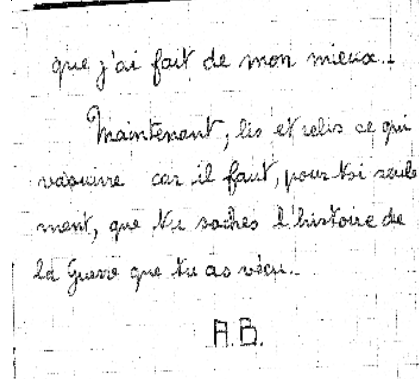 que j'ai fait de mon mieux..
Maintenant, lis et relis ce qui
va suivre car il faut, pour toi seule
ment, que tu saches l'histoire de
la Guerre que tu as vécu..
A.B.